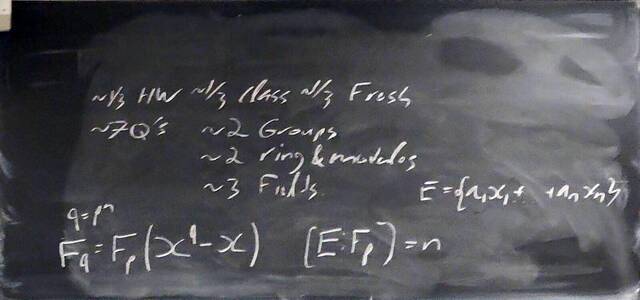 ~1/3 HW ~1/3 Class ~1/3 Fresh
~7Q's ~2 Groups
~2 ring & modulos
~3 Fields
E = {a₁x₁ + + aₙxₙ}
q = pⁿ
F_q = F_p(x^q - x) [E:F_p] = n